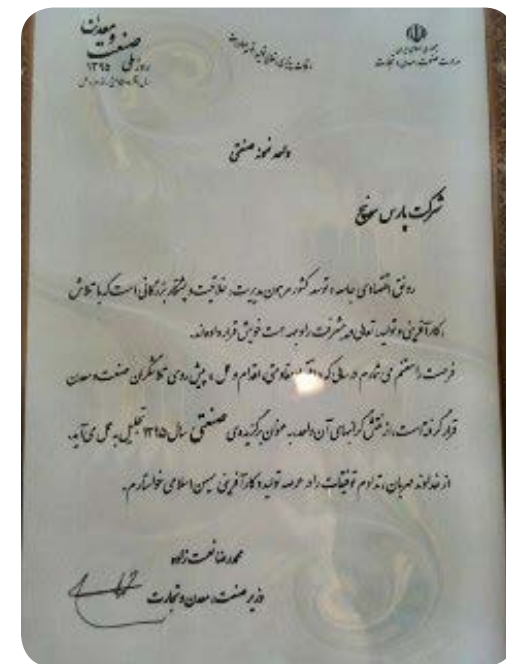 صنعت و معدن
روز ملی ۱۳۹۵
جمهوری اسلامی ایران
وزارت صنعت، معدن و تجارت
واحد نمونه صنعتی
شرکت پارس سویچ
رونق اقتصادی جامعه و توسعه کشور مرهون مدیریت، خلاقیت و پشتکار بزرگانی است که با تلاش
، کارآفرینی و تولید، تعالی و پیشرفت را وجهه همت خویش قرار داده‌اند.
فرصت را مغتنم می شمارم در سالی که اقتصاد مقاومتی، اقدام و عمل، پیش روی تلاشگران صنعت و معدن
قرار گرفته است، از نقش گرانبهای آن واحد، به عنوان برگزیده‌ی صنعتی سال ۱۳۹۵ تجلیل به عمل می آید.
از خداوند مهربان، تداوم توفیقات را در عرصه تولید و کارآفرینی میهن اسلامی خواستارم.
محمدرضا نعمت زاده
وزیر صنعت، معدن و تجارت